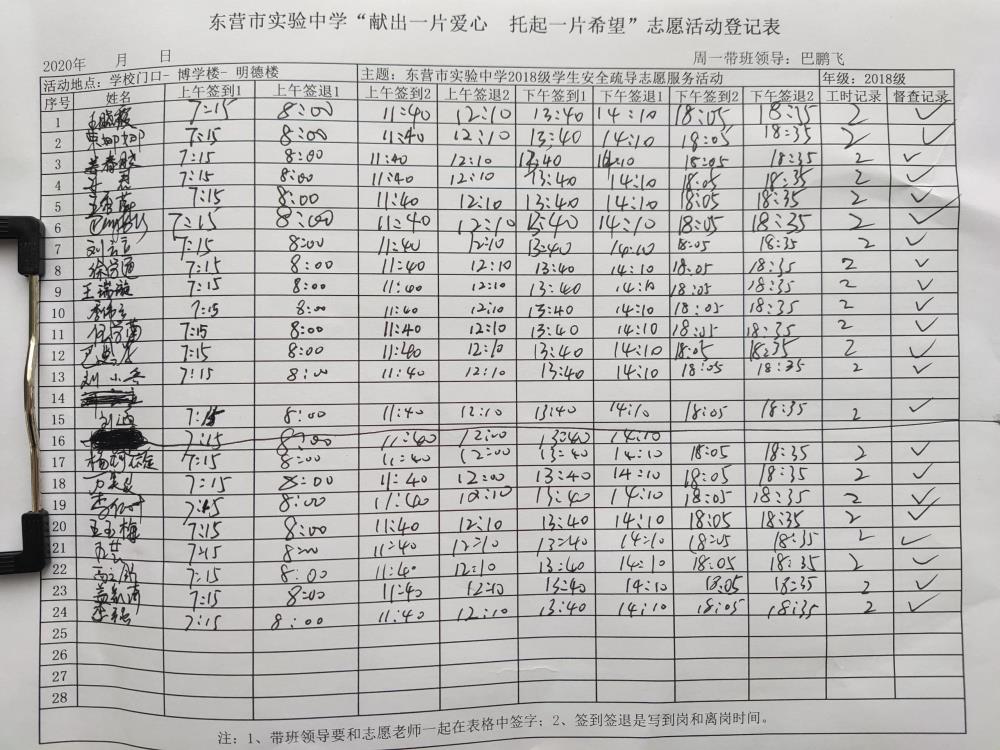 东营市实验中学“献出一片爱心　托起一片希望”志愿活动登记表
2020年　月　日　周一带班领导：巴鹏飞
活动地点：学校门口- 博学楼- 明德楼　主题：东营市实验中学2018级学生安全疏导志愿服务活动　年级：2018级
序号　姓名　上午签到1　上午签退1　上午签到2　上午签退2　下午签到1　下午签退1　下午签到2　下午签退2　工时记录　督查记录
1　7:15　8:00　11:40　12:10　13:40　14:10　18:05　18:35　2　✓
2　7:15　8:00　11:40　12:10　13:40　14:10　18:05　18:35　2　✓
3　7:15　8:00　11:40　12:10　13:40　14:10　18:05　18:35　2　✓
4　7:15　8:00　11:40　12:10　13:40　14:10　18:05　18:35　2　✓
5　7:15　8:00　11:40　12:10　13:40　14:10　18:05　18:35　2　✓
6　7:15　8:00　11:40　12:10　13:40　14:10　18:05　18:35　2　✓
7　7:15　8:00　11:40　12:10　13:40　14:10　18:05　18:35　2　✓
8　7:15　8:00　11:40　12:10　13:40　14:10　18:05　18:35　2　✓
9　王瑞璇　7:15　8:00　11:40　12:10　13:40　14:10　18:05　18:35　2　✓
10　7:15　8:00　11:40　12:10　13:40　14:10　18:05　18:35　2　✓
11　7:15　8:00　11:40　12:10　13:40　14:10　18:05　18:35　2　✓
12　7:15　8:00　11:40　12:10　13:40　14:10　18:05　18:35　2　✓
13　刘小兵　7:15　8:00　11:40　12:10　13:40　14:10　18:05　18:35　2　✓
14
15　7:15　8:00　11:40　12:10　13:40　14:10　18:05　18:35　2　✓
16　7:15　8:00　11:40　12:00　13:40　14:10
17　7:15　8:00　11:40　12:00　13:40　14:10　18:05　18:35　2　✓
18　7:15　8:00　11:40　12:00　13:40　14:10　18:05　18:35　2　✓
19　7:15　8:00　11:40　12:10　13:40　14:10　18:05　18:35　2　✓
20　王玉梅　7:15　8:00　11:40　12:10　13:40　14:10　18:05　18:35　2　✓
21　7:15　8:00　11:40　12:10　13:40　14:10　18:05　18:35　2　✓
22　7:15　8:00　11:40　12:10　13:40　14:10　18:05　18:35　2　✓
23　7:15　8:00　11:40　12:10　13:40　14:10　18:05　18:35　2　✓
24　李强　7:15　8:00　11:40　12:10　13:40　14:10　18:05　18:35　2　✓
25
26
27
28
注：1、带班领导要和志愿老师一起在表格中签字；2、签到签退是写到岗和离岗时间。